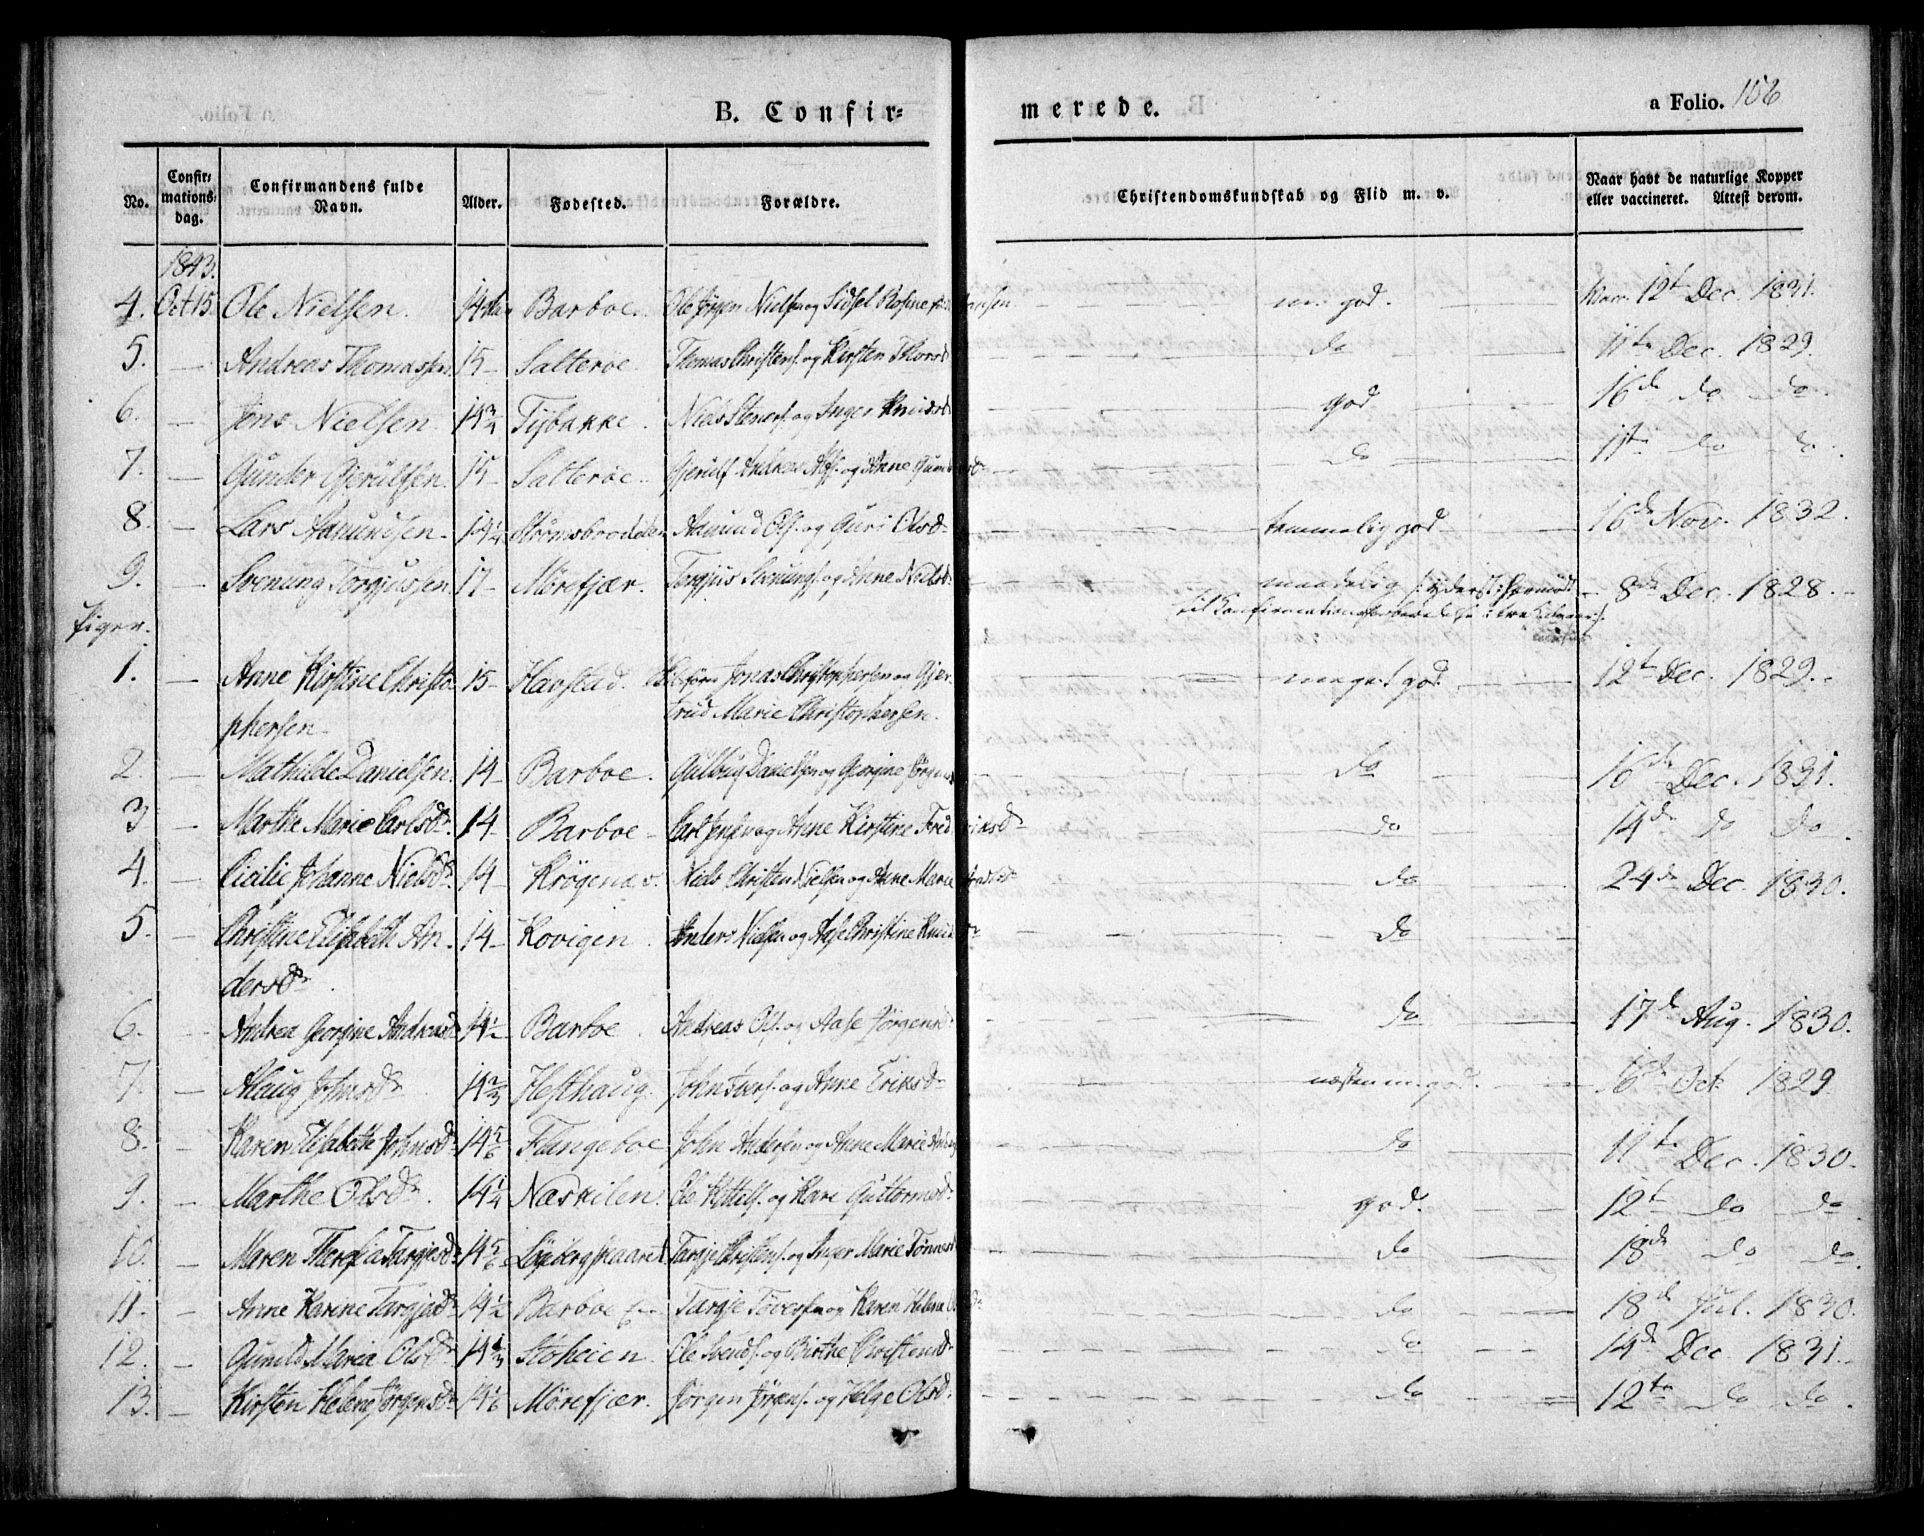 B. Confir=
merede.
a Folio. 106
No.
Confir= mations= dag.
Confirmandens fulde Navn.
Alder.
Fødested.
Forældre.
Christendomskundskab og Flid m. v.
Naar havt de naturlige Kopper eller vaccineret. Attest derom.
1843.
4. Oct 15. Ole Nielsen. 14 Barboe. Ole Jørgen Nielsen og Sidsel Rosine Hansen m. god. 12te Dec. 1831.
5. — Andreas Thomassen 15 — Salteroe. Thomas Christens. og Kirsten Thorsd do 11te Dec. 1829.
6. — Jens Nielsen 14 3/4 Tybakke. Niels Steners. og Inger Knudsd god 16de do do.
7. — Gunder Gjerulfsen 15 — Salteroe. Gjerulf Andreas Alfs. og Anne Gundersd do 11te do do.
8. — Lars Aamundsen 14 1/4 Strømsboedelen Aamund Ols. og Guri Olsd temmelig god 16de Nov. 1832.
9. — Svenung Torgjussen 17 — Mørefjær. Torgjus Svenungs. og Anne Nielsd maadelig 8de Dec. 1828.
til Confirmationsforberedelse
Piger.
1. — Anne Kirstine Christo- 15 — Havstad. Jonas Christophersen og Gjer- meget god 12te Dec. 1829.
phersen trud Marie Christophersen.
2. — Mathilde Danielsen. 14 — Barboe. Gulbrug Danielsen og Georgine Jørgens do 16de Dec. 1831.
3 — Marthe Marie Carlsdr. 14 — Barboe — Carl Jensen og Anne Kirstine Fredriksdr do 14de do do.
4. — Cicilie Johanne Nielsdr 14 — Krøgenæs. Niels Christen Nielsen og Anne Marie do 24de Dec. 1830.
5. — Christine Elisabeth An- 14 — Kovigen. Anders Nielsen og Aase Christine Knudsdr do
dersdr
6. — Andrea Georgine Andreasdr 14 1/2 Barboe. Andreas Ols. og Aase Jørgensd. do 17de Aug. 1830.
7. — Alaug Johnsdr 14 2/3 Hesthaug. John Ivers. og Anne Eriksdr næsten m. god. 16de Oct. 1829
8. — Karen Elisabeth Johnsdr 14 5/6 Fangeboe John Andersen og Anne Marie do 11te Dec. 1830.
9. — Marthe Olsdr. 14 1/4 Næskilen. Ole Kittels. og Kari Guttormsd. god. 12te do do
10. — Maren Theresia Targjesdr 14 5/6 Løgbergskaaret Targje Christens. og Inger Marie Tønnesd do 18de do do.
11. — Anne Karine Targjesdr 14 1/2 Barboe Targje Toversen og Karen Helena do 18de Jul. 1830.
12. — Gunild Maria Olsdr 14 1/3 Stoheien. Ole Svends. og Birthe Christensd do 14de Dec 1831.
13. — Kirsten Helene Jørgensdr 14 1/6 Mørefjær. Jørgen Jørgens. og Helge Olsd. do 12te do do.